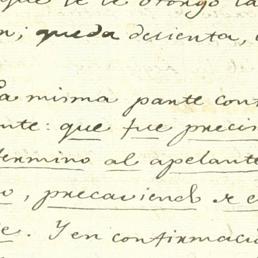 que se le otorgó la
n; queda desienta,
La misma pante cont
nte: que fue precis
termino al apelante
o, precaviend se e
e. Y en confirmació